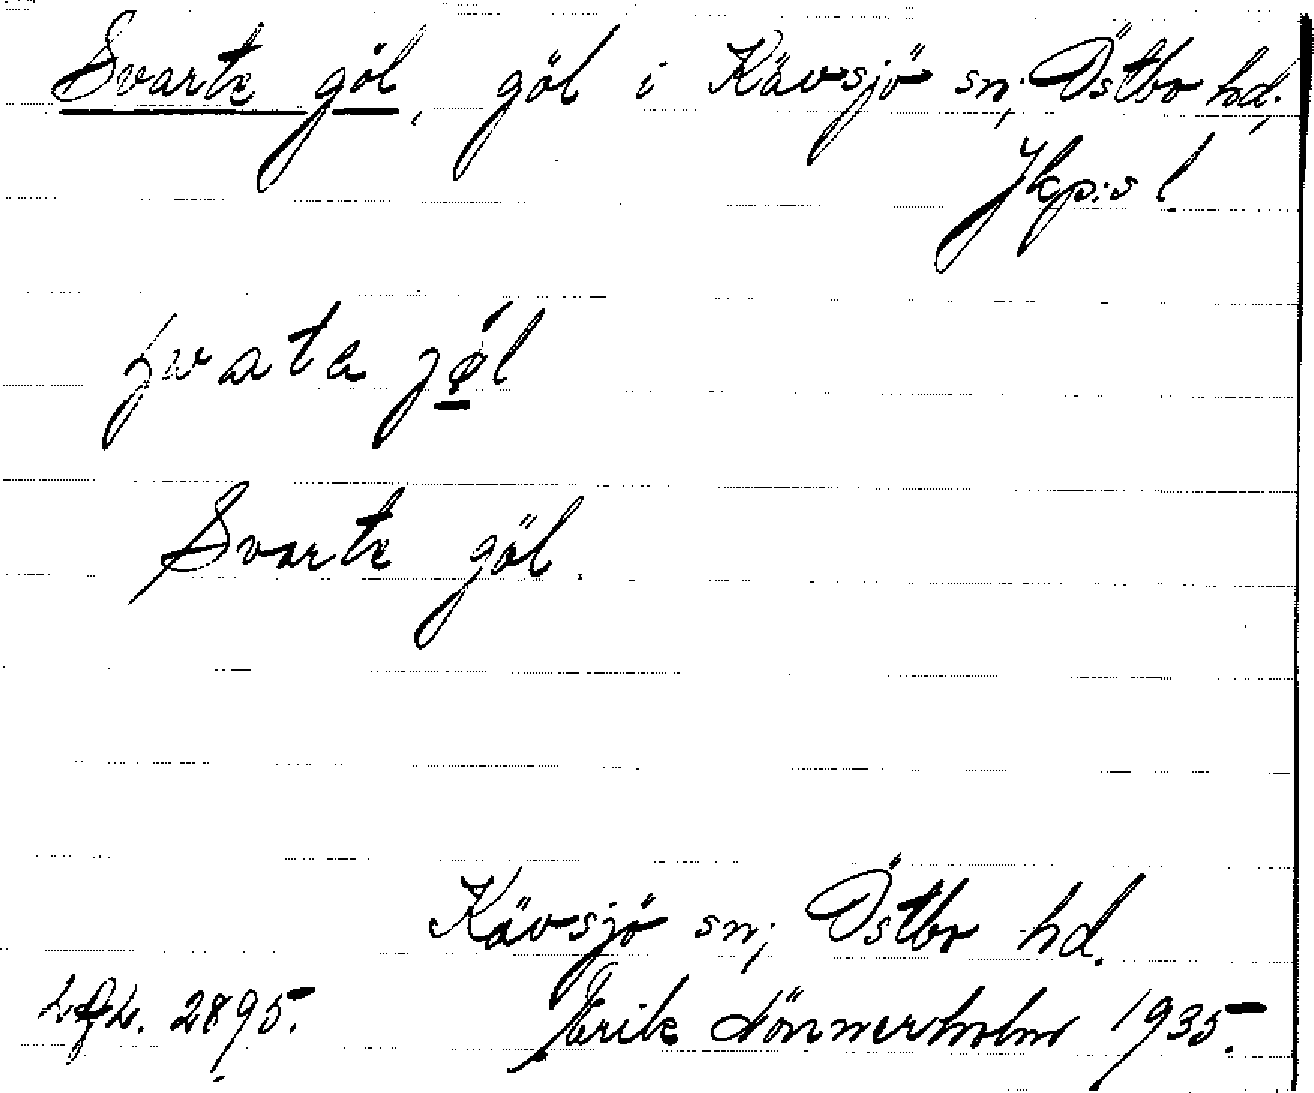 Svarte göl, göl i Kävsjö sn; Östbo hd;
Jkp:s l
Svarte göl.
Kävsjö sn; Östbo hd.
2895.
Erik Lönnerholm 1935.